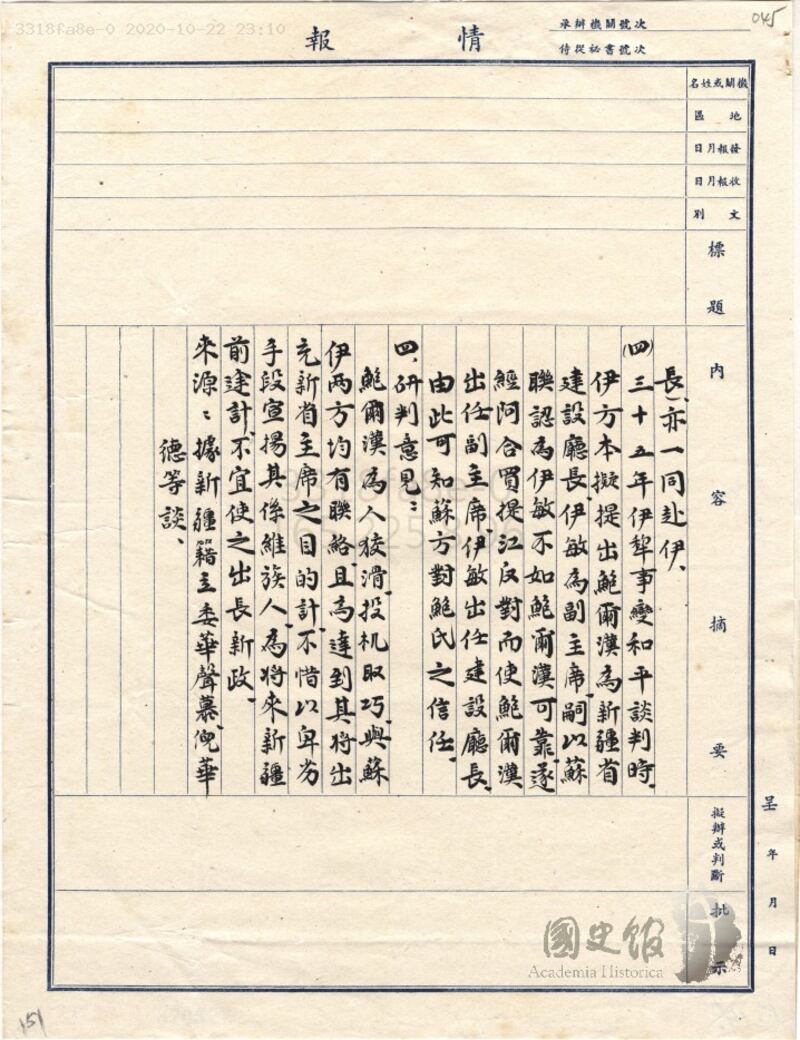 3318fa8e-0 2020-10-22 23:10
045
承辦機關號次
侍從祕書號次
情報
機關或姓名
地區
發報月日
收報月日
文別
標題
內容摘要
擬辦或判斷
批示
呈 年 月 日
長)亦一同赴伊、
(四)三十五年伊犂事變和平談判時、
伊方本擬提出鮑爾漢為新疆省
建設廳長、伊敏為副主席、嗣以蘇
聯認為伊敏不如鮑爾漢可靠、遂
經阿合買提江反對而使鮑爾漢
出任副主席、伊敏出任建設廳長、
由此可知蘇方對鮑氏之信任、
四、研判意見：
鮑爾漢為人狡滑、投机取巧、與蘇
伊兩方均有聯絡、且為達到其將出
充新省主席之目的計、不惜以卑劣
手段宣揚其係維族人、為將來新疆
前途計、不宜使之出長新政、
來源：據新疆籍立委華聲慕、倪華
德等談、
國史館
Academia Historica
151